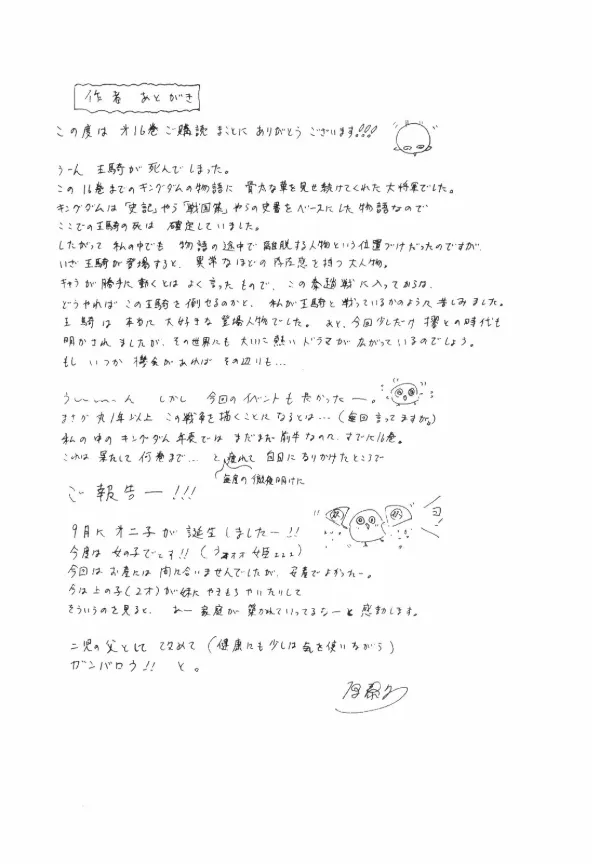 作者 あとがき
この度は 才16巻 ご購読 まことに ありがとう ございます!!!
うーん 王騎が 死んでしまった。
この 16巻までのキングダムの物語に 骨太な華を見せ続けてくれた大将軍でした。
キングダムは「史記」やら「戦国策」やらの史書をベースにした物語なので
ここでの王騎の死は 確定していました。
したがって 私の中でも 物語の途中で離脱する人物という位置づけだったのですが、
いざ王騎が登場すると、異常なほどの存在感を持つ大人物。
キャラが勝手に動くとは よく言ったもので、この秦趙戦に入ってからは、
どうやれば この王騎を倒せるのかと、私が王騎と戦っているかのように苦しみました。
王騎は 本当に 大好きな登場人物でした。あと、今回少しだけ 摎との時代も
明かされましたが、その世界にも 大いに熱いドラマが広がっているのでしょう。
もし いつか 機会があれば その辺りも…
う〜〜〜ん しかし 今回のイベントも長かったー。
まさか 丸1年以上 この戦争を描くことになるとは…(毎回言ってますが。)
私の中のキングダム年表では まだまだ前半なのに、すでに16巻。
これは 果たして何巻まで…と 疲れて 白目になりかけたところで
毎度の徹夜明けに
ご報告ー!!!
9月に 才二子が 誕生しましたー!!
今度は 女の子です!! (うォオオ 姫ェェェ)
今回は お産には 間に合いませんでしたが、安産でよかったー。
今は上の子(2才)が妹にやきもちやいたりして
そういうのを見ると、おー 家庭が 築かれていってるなーと 感動します。
二児の父として 改めて (健康にも少しは気を使いながら)
ガンバロウ!! と。
原泰久